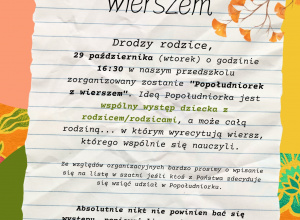 wierszem
Drodzy rodzice,
29 października (wtorek) o godzinie
16:30 w naszym przedszkolu
zorganizowany zostanie "Popołudniorek
z wierszem". Ideą Popołudniorka jest
wspólny występ dziecka z
rodzicem/rodzicami, a może całą
rodziną... w którym wyrecytują wiersz,
którego wspólnie się nauczyli.
Ze względów organizacyjnych bardzo prosimy o wpisanie
się na listę w szatni jeśli ktoś z Państwa zdecyduje
się wziąć udział w Popołudniorku.
Absolutnie nikt nie powinien bać się